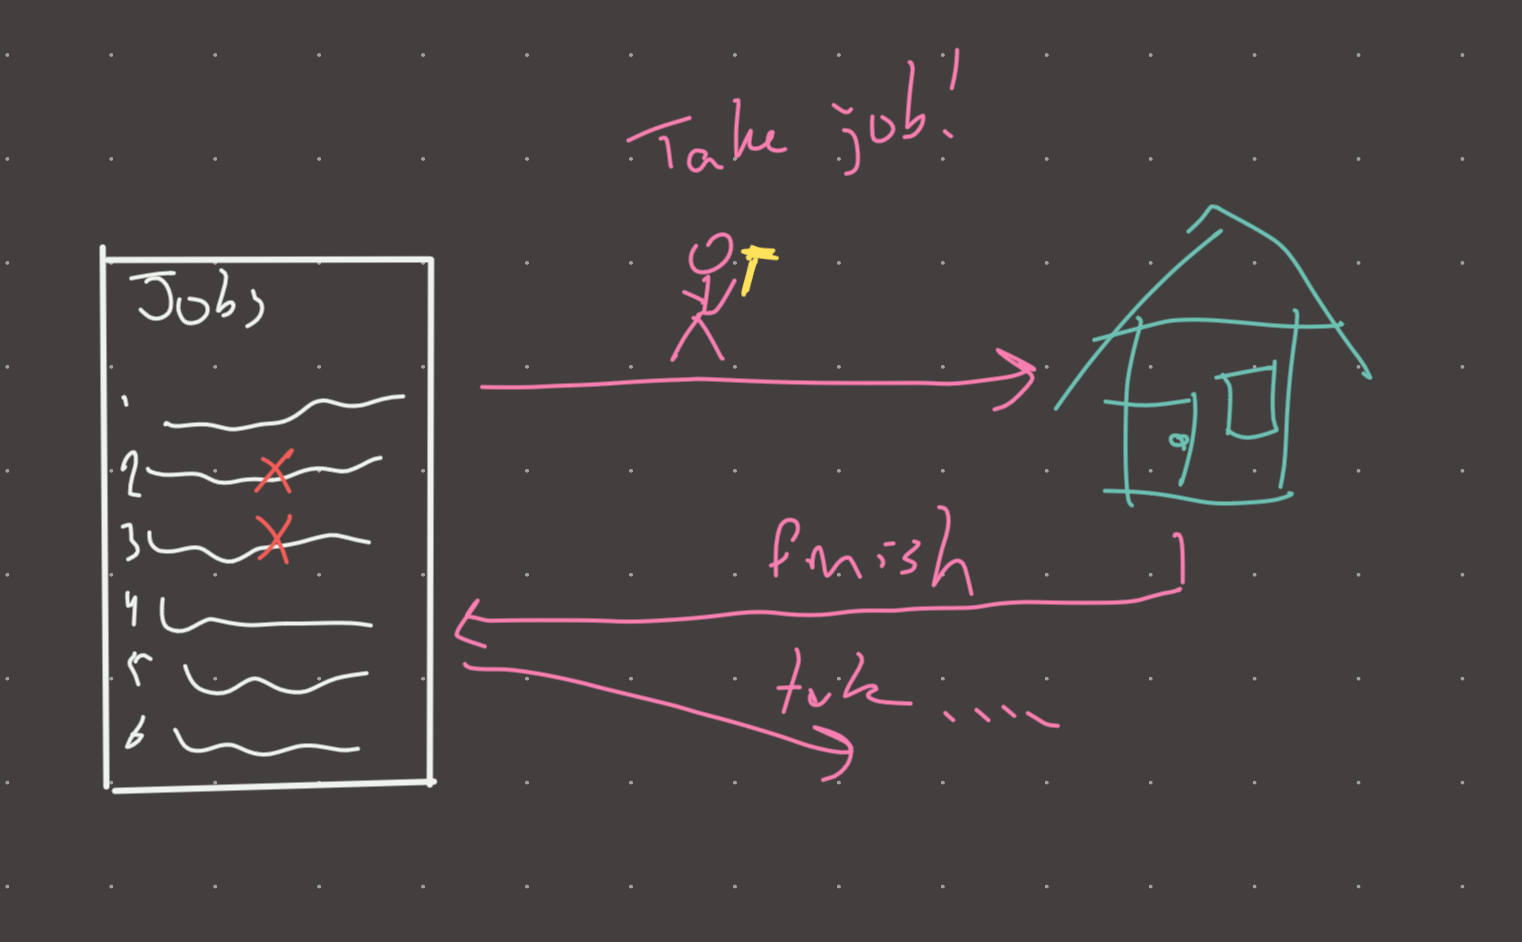 Take job!
Jobs
1
2
3
4
5
6
finish
take ....